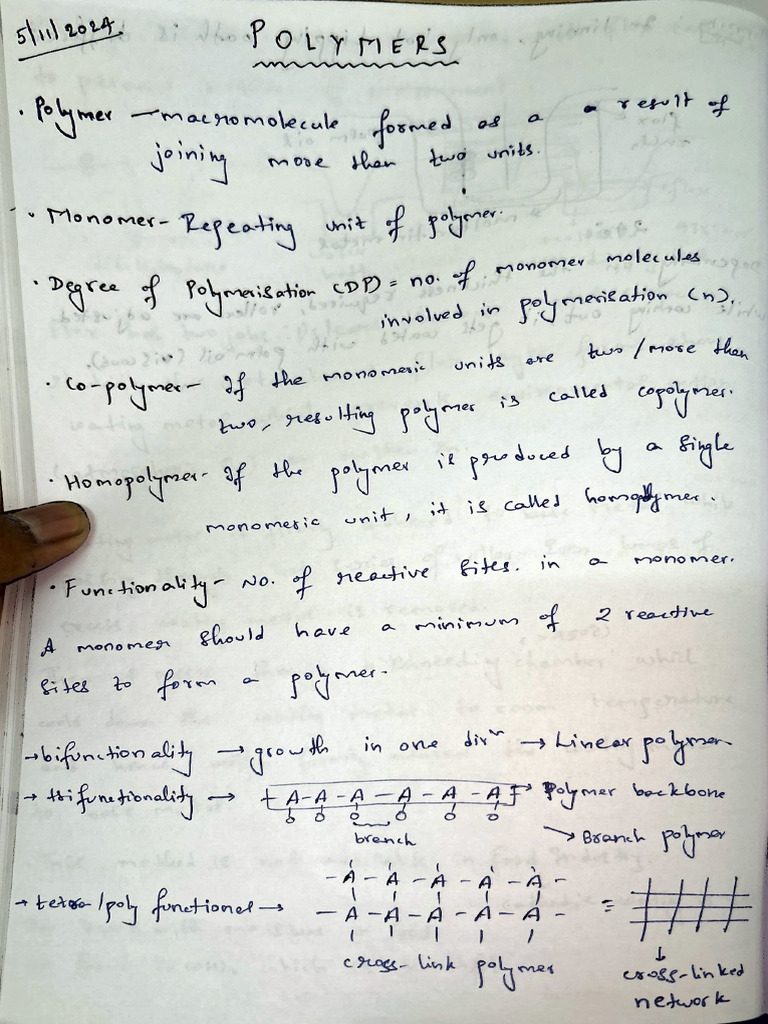 5/11/2024.
POLYMERS
• Polymer - macromolecule formed as a a result of
joining more than two units.
• Monomer - Repeating unit of polymer.
• Degree of Polymerisation (DP) = no. of monomer molecules
involved in polymerisation (n).
• Co-polymer - If the monomeric units are two/more than
two, resulting polymer is called copolymer.
• Homopolymer - If the polymer is produced by a single
monomeric unit, it is called homopolymer.
• Functionality - No. of reactive sites. in a monomer.
A monomer should have a minimum of 2 reactive
sites to form a polymer.
→ bifunctionality → growth in one dirⁿ → Linear polymer
→ trifunctionality → + A-A-A-A-A-A + → Polymer backbone
branch
→ Branch polymer
-A-A-A-A-A-
→ tetra/poly functional → -A-A-A-A-A- =
cross-link polymer
↓
cross-linked
network